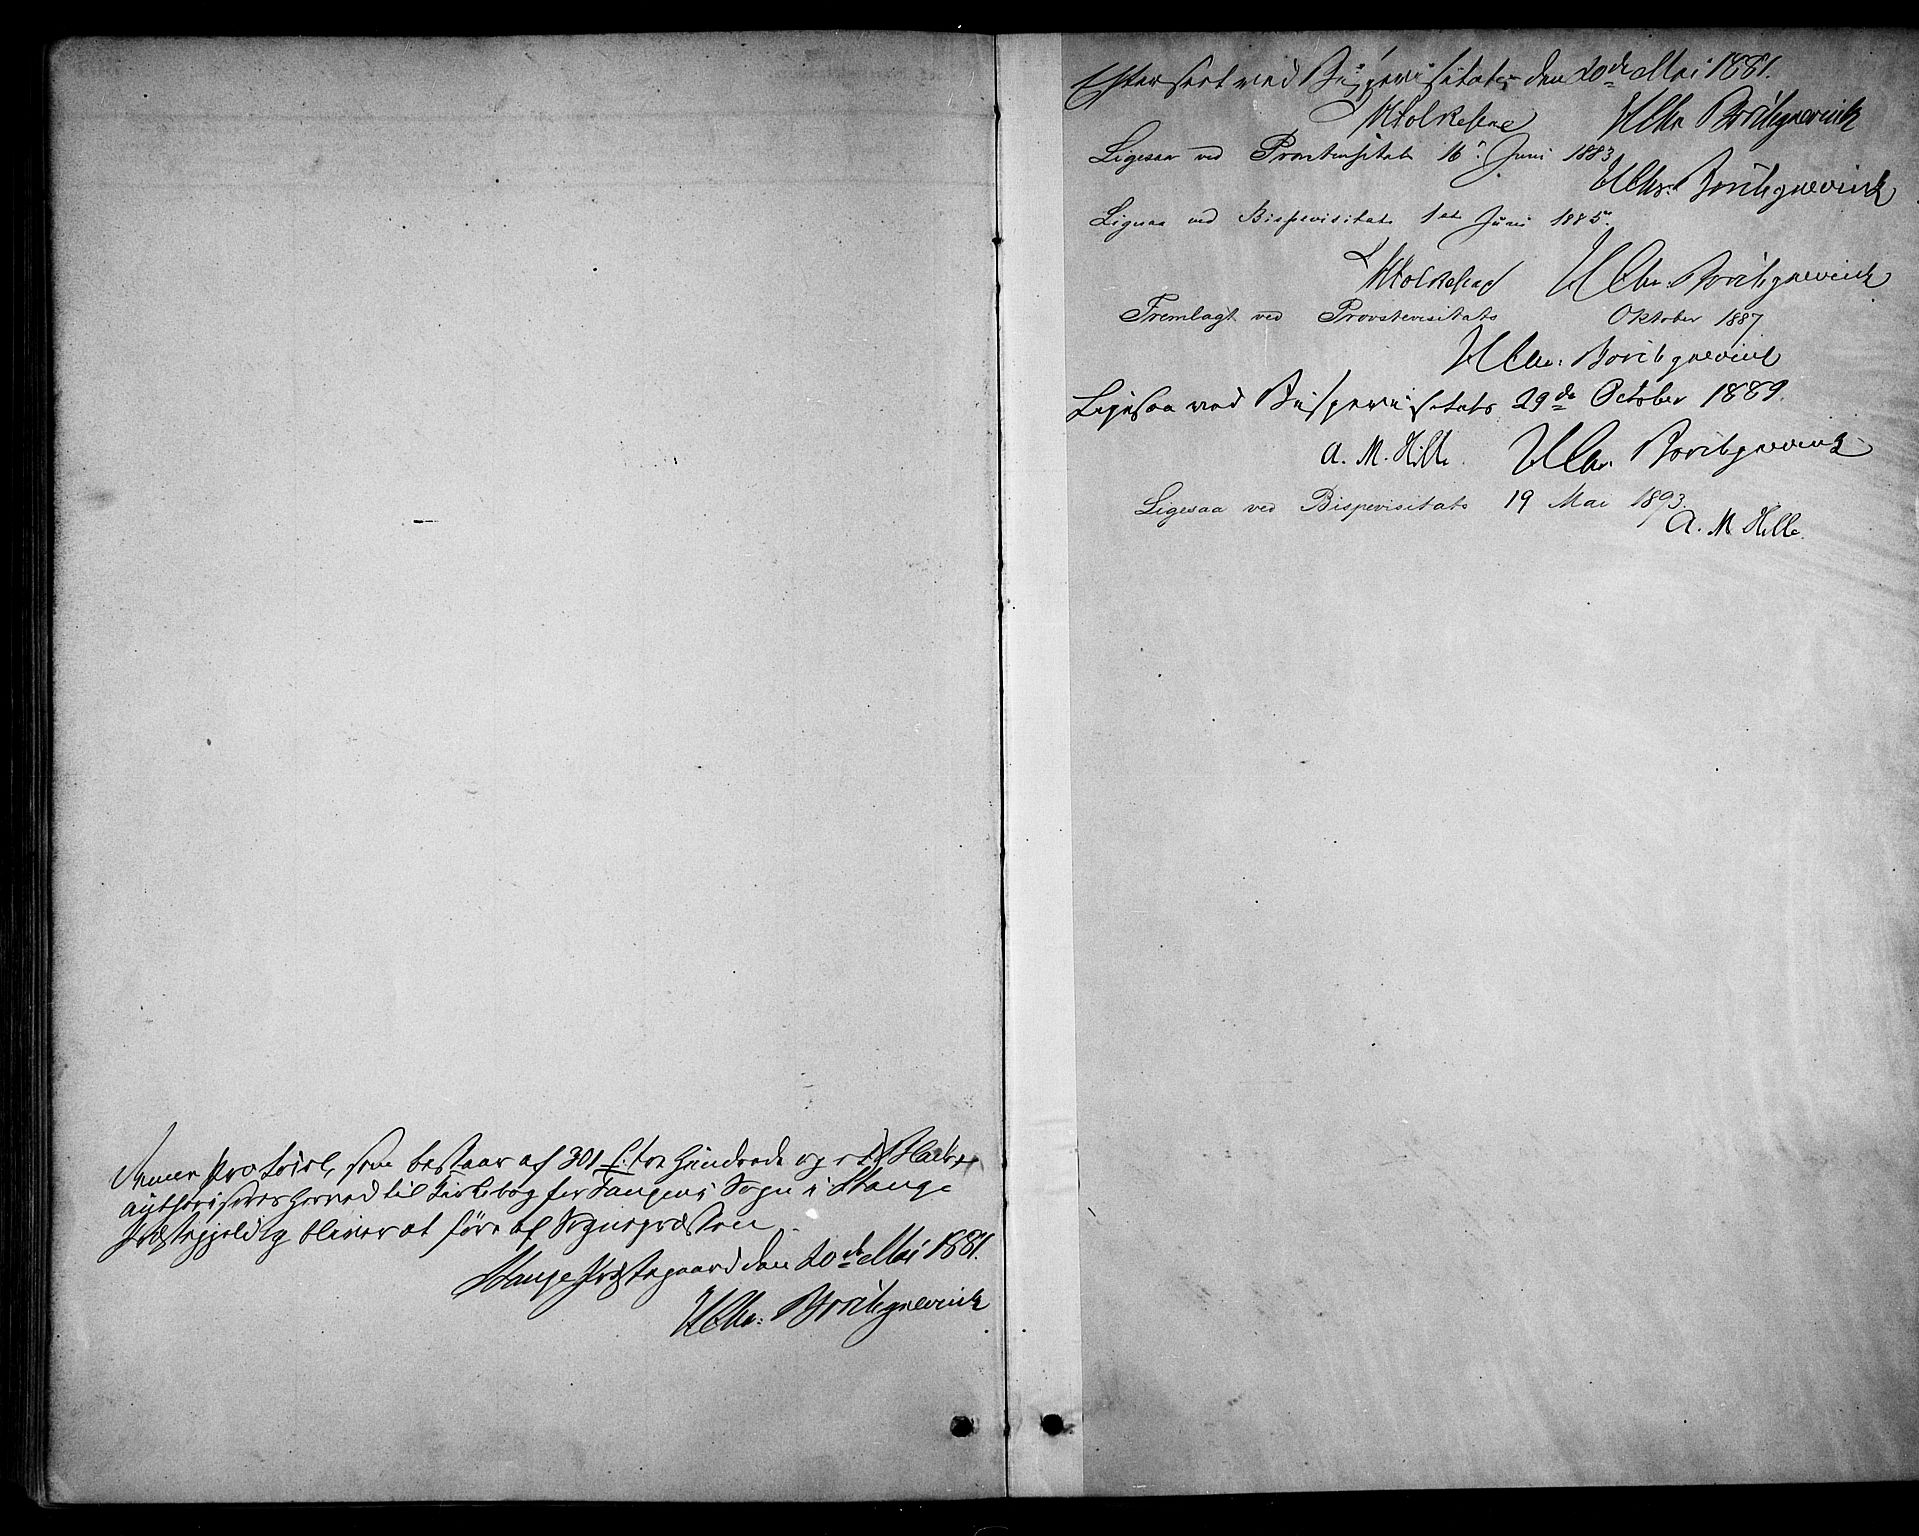 Denne Protokol, som bestaar af 301 s. tre Hundrede og et Blade,
authoriseres herved til Kirkebog for Tangens Sogn i Stange
Præstegjeld og bliver at føre af Sognepræsten.
Stange Præstegaard den 20de Mai 1881.
H. Chr. Borchgrevink
Efterseet ved Bispevisitats den 20de Mai 1881.
H. Chr. Borchgrevink
Ligesaa ved Provstevisitats 16. Juni 1883
H Chr. Borchgrevink
Ligesaa ved Bispevisitats 1st Juni 1885.
H Chr. Borchgrevink
Fremlagt ved Provstevisitats Oktober 1887
H Chr. Borchgrevink
Ligesaa ved Bispevisitats 29de October 1889.
A. M. Hille. H Chr. Borchgrevink
Ligesaa ved Bispevisitats 19 Mai 1893.
A. M. Hille.